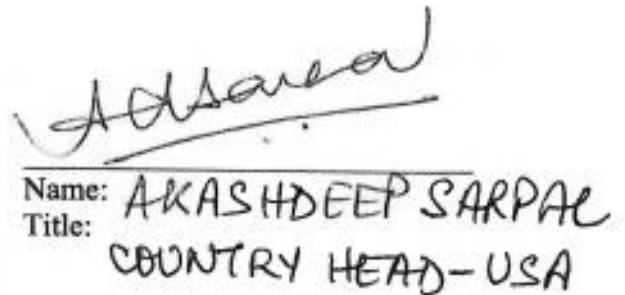 Name: AKASHDEEP SARPAL
Title: COUNTRY HEAD-USA